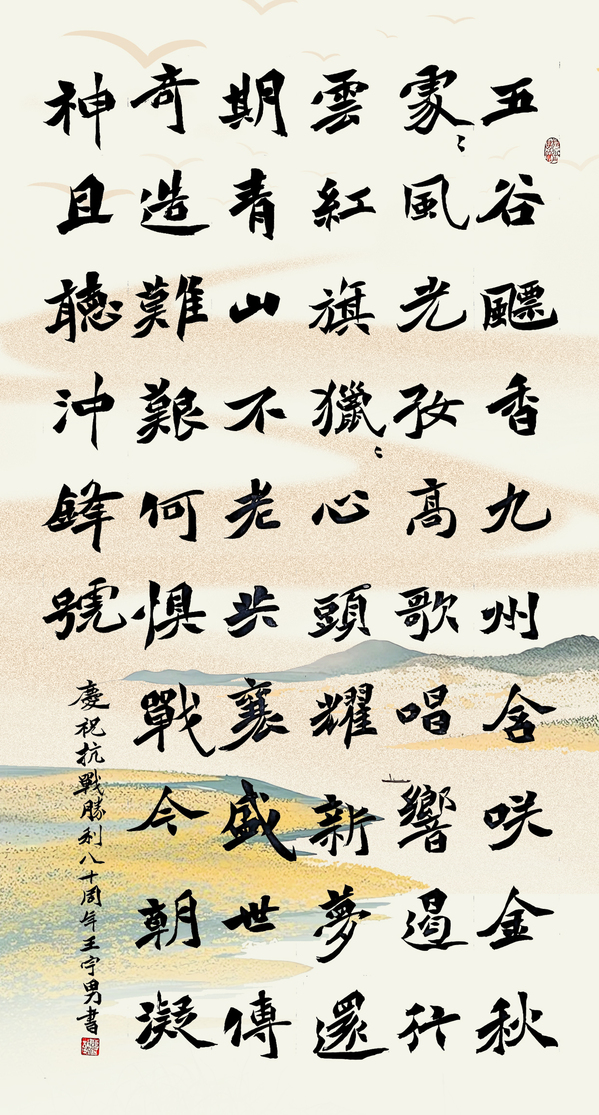 五谷飃香九州含咲金秋
處〻風光好高歌唱響遏行
雲紅旗獵〻心頭耀新夢還
期青山不老共襄盛世傳
奇造難艱何懼戰今朝凝
神且聽沖鋒號
慶祝抗戰勝利八十周年王宇男書